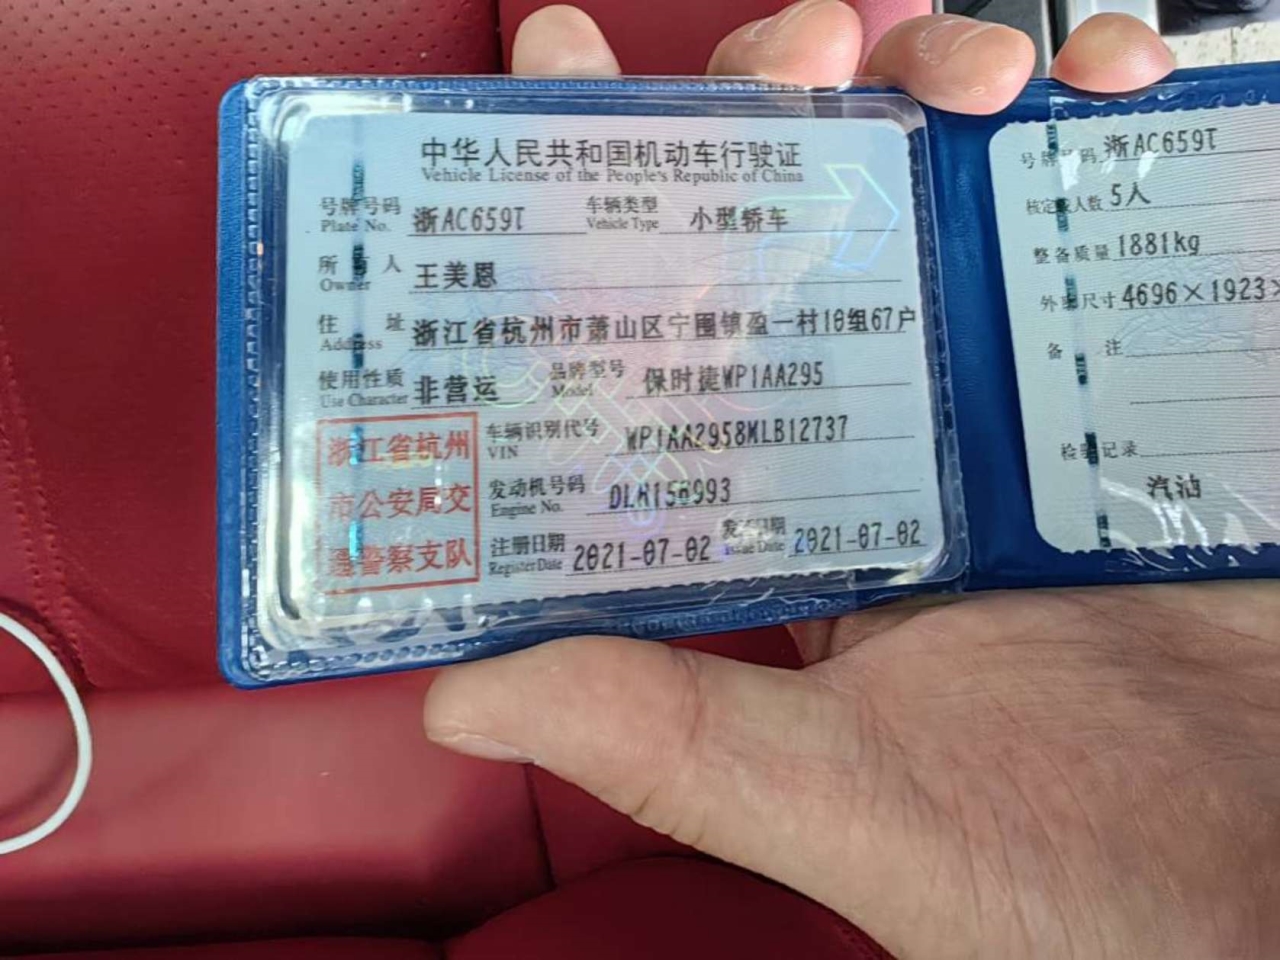 中华人民共和国机动车行驶证
Vehicle License of the People's Republic of China
号牌号码 浙AC659T 车辆类型 小型轿车
Plate No. Vehicle Type
所 人 王美恩
Owner
住 址 浙江省杭州市萧山区宁围镇盈一村10组67户
Address
使用性质 非营运 品牌型号 保时捷WP1AA295
Use Character Model
车辆识别代号 WP1AA2958MLB12737
VIN
发动机号码
Engine No.
注册日期 2021-07-02 发证日期 2021-07-02
Register Date Issue Date
浙江省杭州
市公安局交
通警察支队
号牌号码 浙AC659T
核定载人数 5人
整备质量 1881kg
外廓尺寸 4696×1923×
备 注
检验记录
汽油